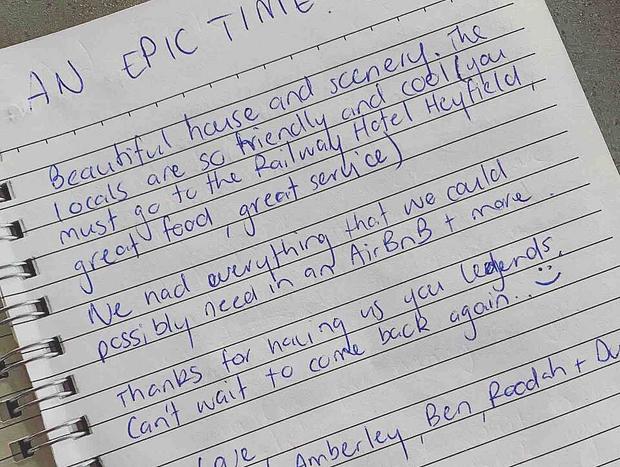 AN EPIC TIME.
Beautiful house and scenery. The
locals are so friendly and cool (you
must go to the Railway Hotel Heyfield,
great food, great service)
We had everything that we could
possibly need in an AirBnB + more.
Thanks for having us you legends.
Can't wait to come back again..
Amberley, Ben,